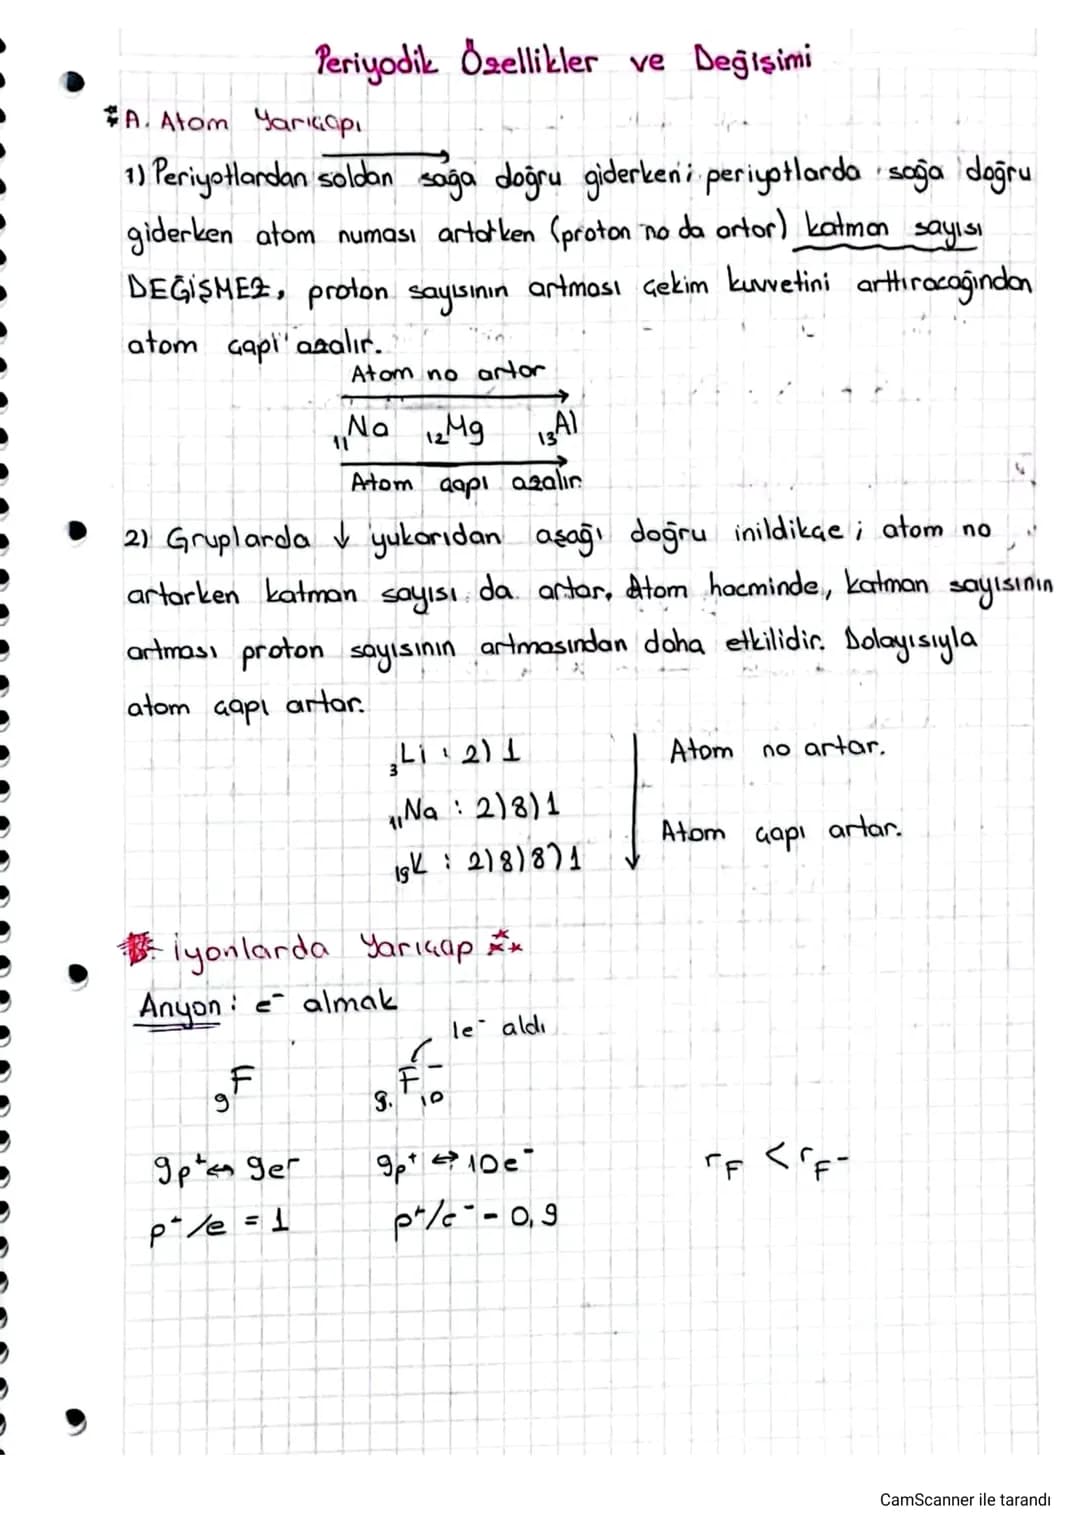 Periyodik Özellikler ve Değişimi
A. Atom Yarıçapı
1) Periyotlardan soldan sağa doğru giderken; periyotlarda sağa doğru
giderken atom numası artarken (proton no da artar) katman sayısı
DEĞİŞMEZ, proton sayısının artması çekim kuvvetini arttıracağından
atom çapı azalır.
Atom no artar
11Na 12Mg 13Al
Atom çapı azalır
2) Gruplarda ↓ yukarıdan aşağı doğru inildikçe; atom no
artarken katman sayısı da artar. Atom hacminde, katman sayısının
artması proton sayısının artmasından daha etkilidir. Dolayısıyla
atom çapı artar.
3Li : 2) 1 Atom no artar.
11Na : 2)8)1
Atom çapı artar.
19K : 2)8)8)1
B. İyonlarda Yarıçap
Anyon: e⁻ almak
1e⁻ aldı
9F 9F⁻10
9p⁺ ↔ 9e⁻ 9p⁺ ↔ 10e⁻ rF < rF⁻
p⁺/e = 1 p⁺/e⁻ - 0,9
CamScanner ile tarandı